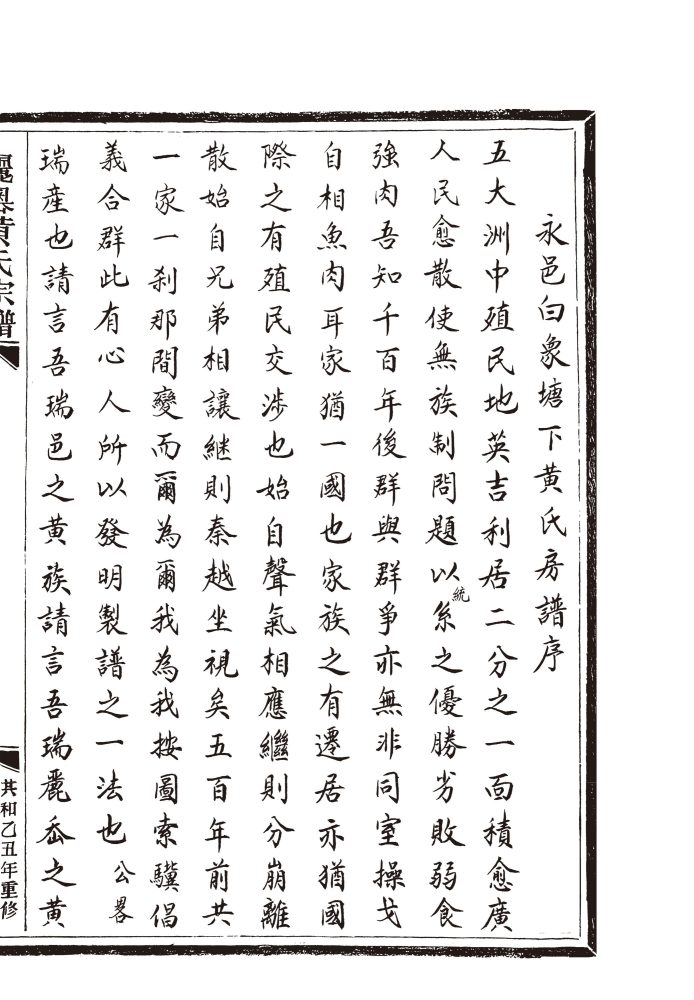 永邑白象塘下黃氏房譜序
五大洲中殖民地英吉利居二分之一面積愈廣
人民愈散使無族制問題以統系之優勝劣敗弱食
強肉吾知千百年後群與群爭亦無非同室操戈
自相魚肉耳家猶一國也家族之有遷居亦猶國
際之有殖民交涉也始自聲氣相應繼則分崩離
散始自兄弟相讓継則秦越坐視矣五百年前共
一家一刹那間變而爾為爾我為我按圖索驥倡
義合群此有心人所以發明製譜之一法也公畧
瑞產也請言吾瑞邑之黃族請言吾瑞麗岙之黃
黃氏宗譜
共和乙丑年重修